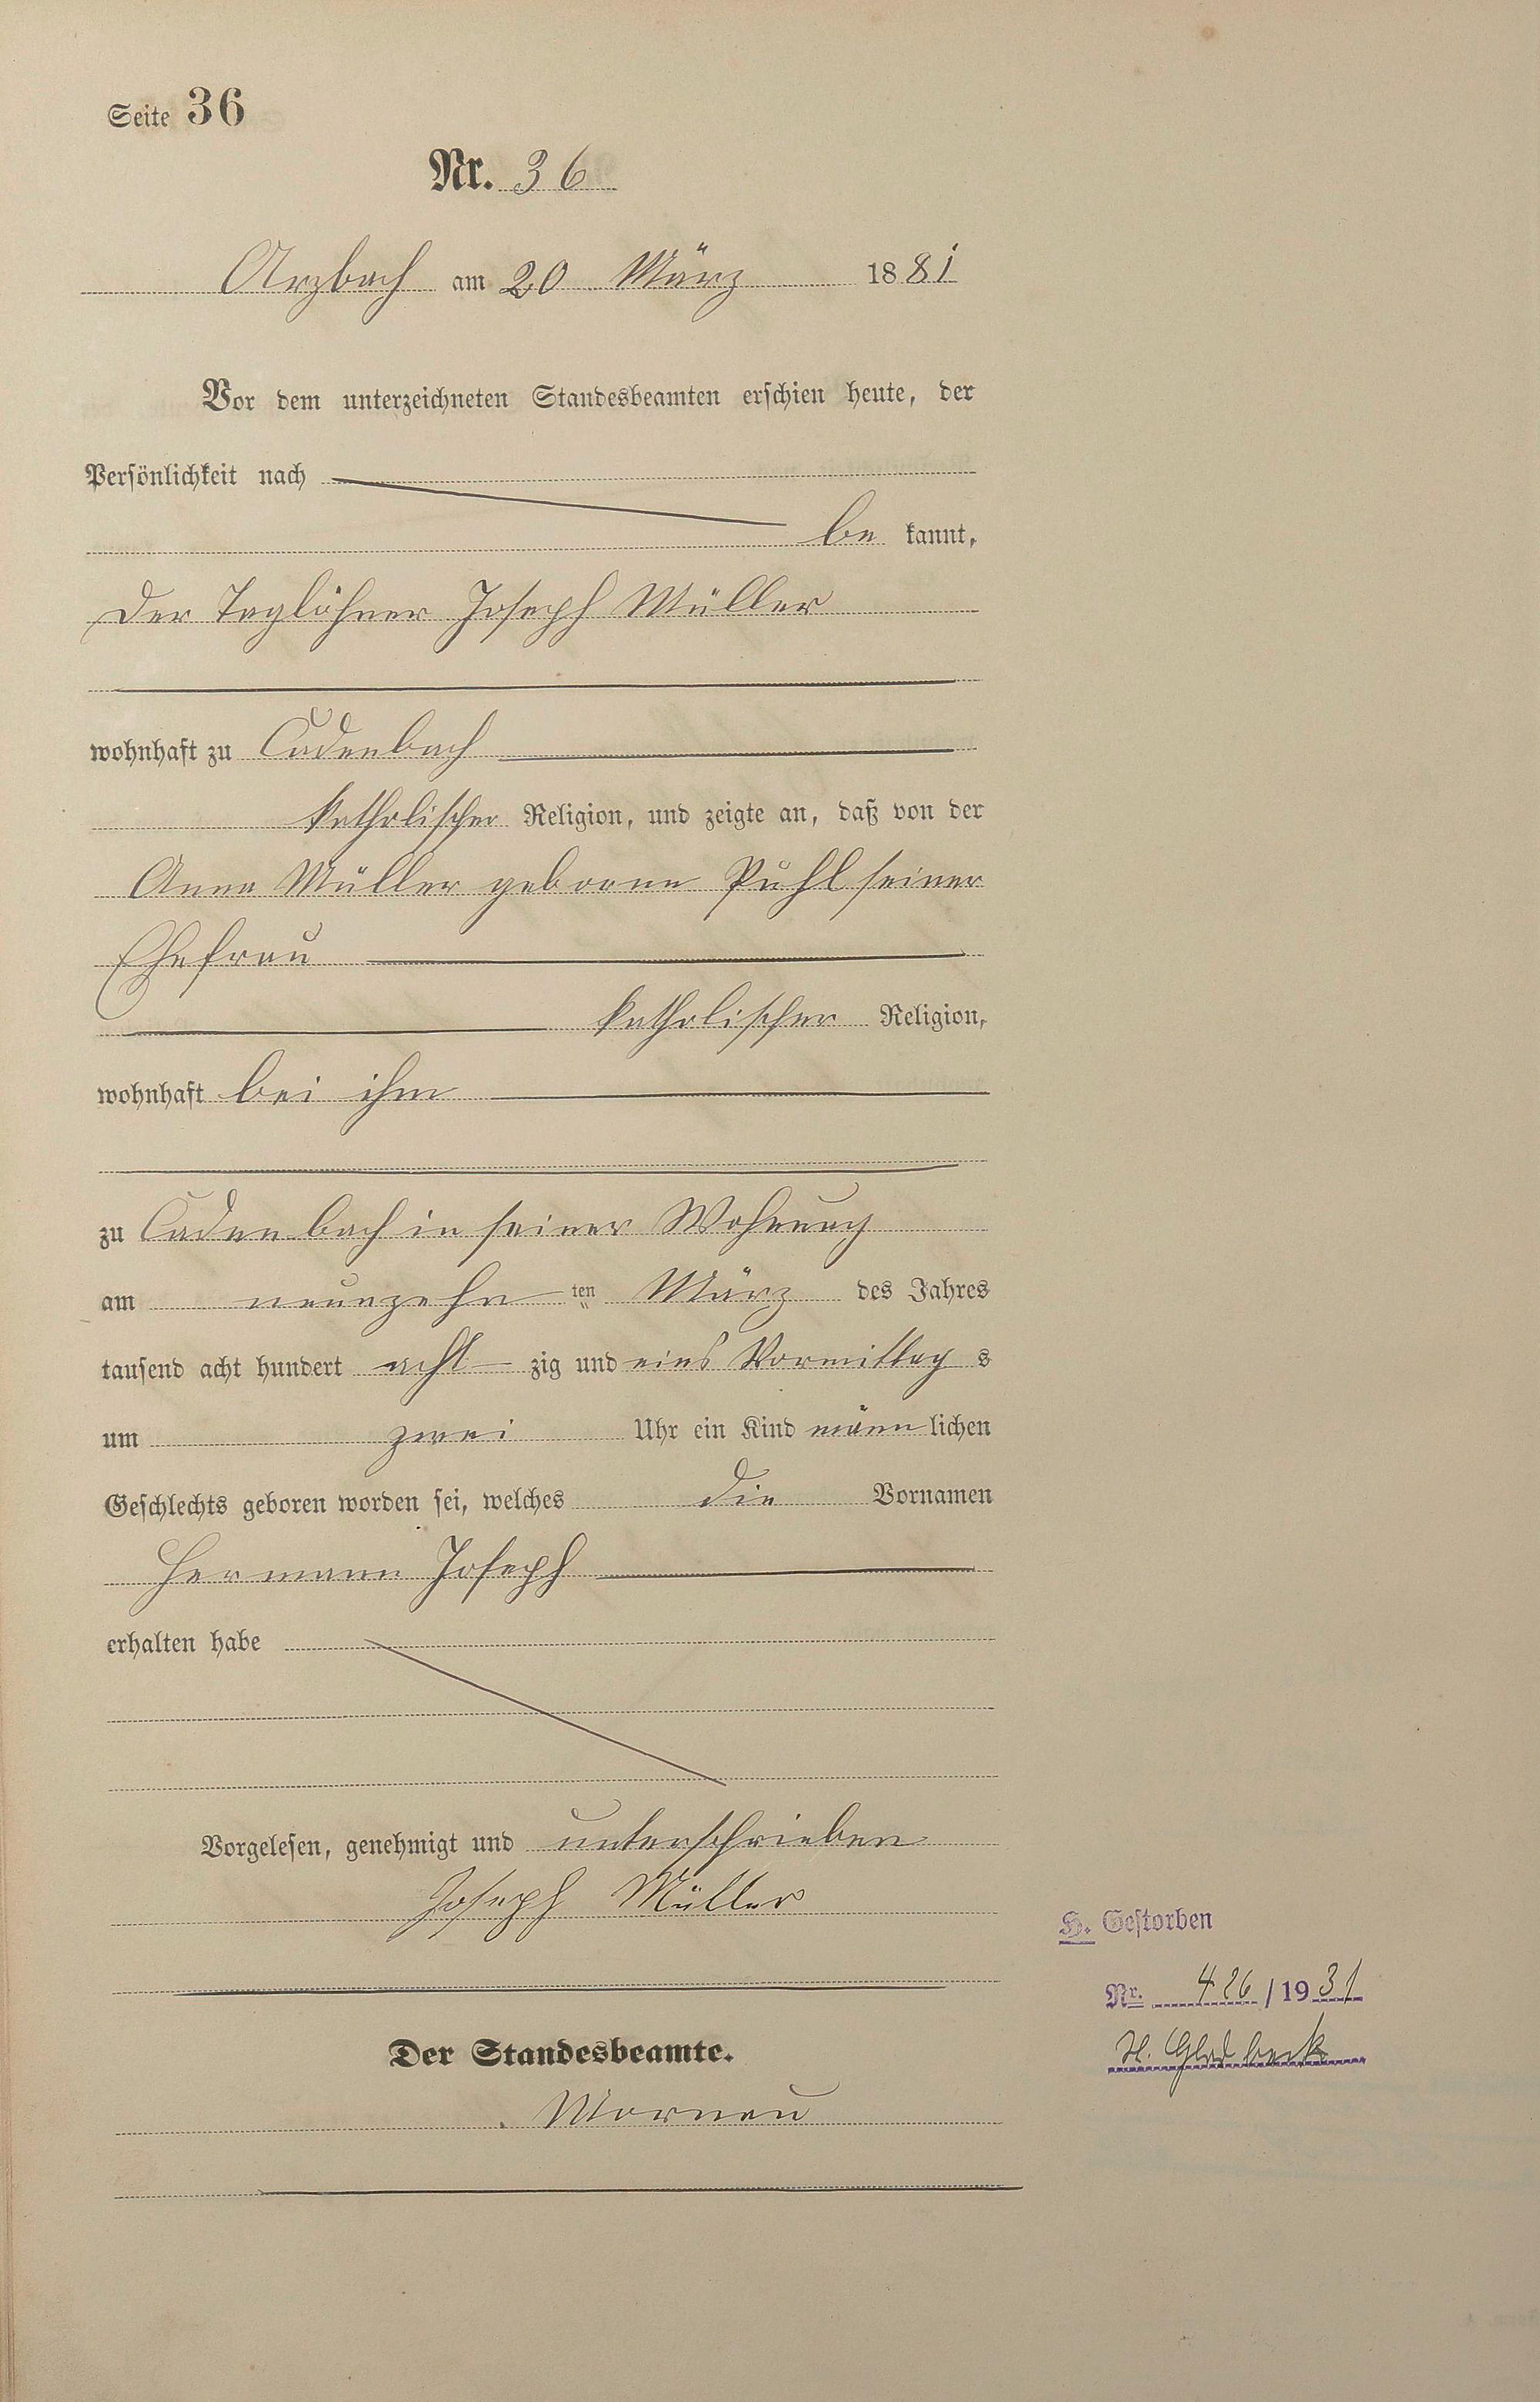 Seite 36
Nr. 36
Arzbach am 20 März 1881
Vor dem unterzeichneten Standesbeamten erschien heute, der
Persönlichkeit nach
be kannt,
der Taglöhner Joseph Müller
wohnhaft zu Cadenbach
katholischer Religion, und zeigte an, daß von der
Anna Müller geborne Puhl seiner
Ehefrau
katholischer Religion,
wohnhaft bei ihm
zu Cadenbach in seiner Wohnung
am neunzehn ten März des Jahres
tausend acht hundert acht zig und eins Vormittag s
um zwei Uhr ein Kind männ lichen
Geschlechts geboren worden sei, welches die Vornamen
Hermann Joseph
erhalten habe
Vorgelesen, genehmigt und unterschrieben
Joseph Müller
H. Gestorben
Nr. 426/1931
Gladbeck
Der Standesbeamte.